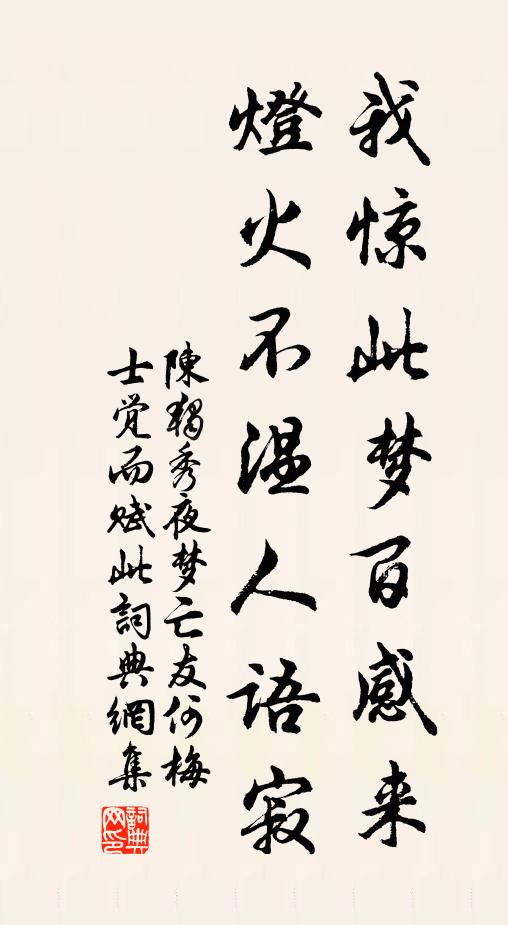 我惊此梦百感来
燈火不温人语寂
陳獨秀夜梦亡友何梅
士觉而赋此詞典網集
詞典
网印